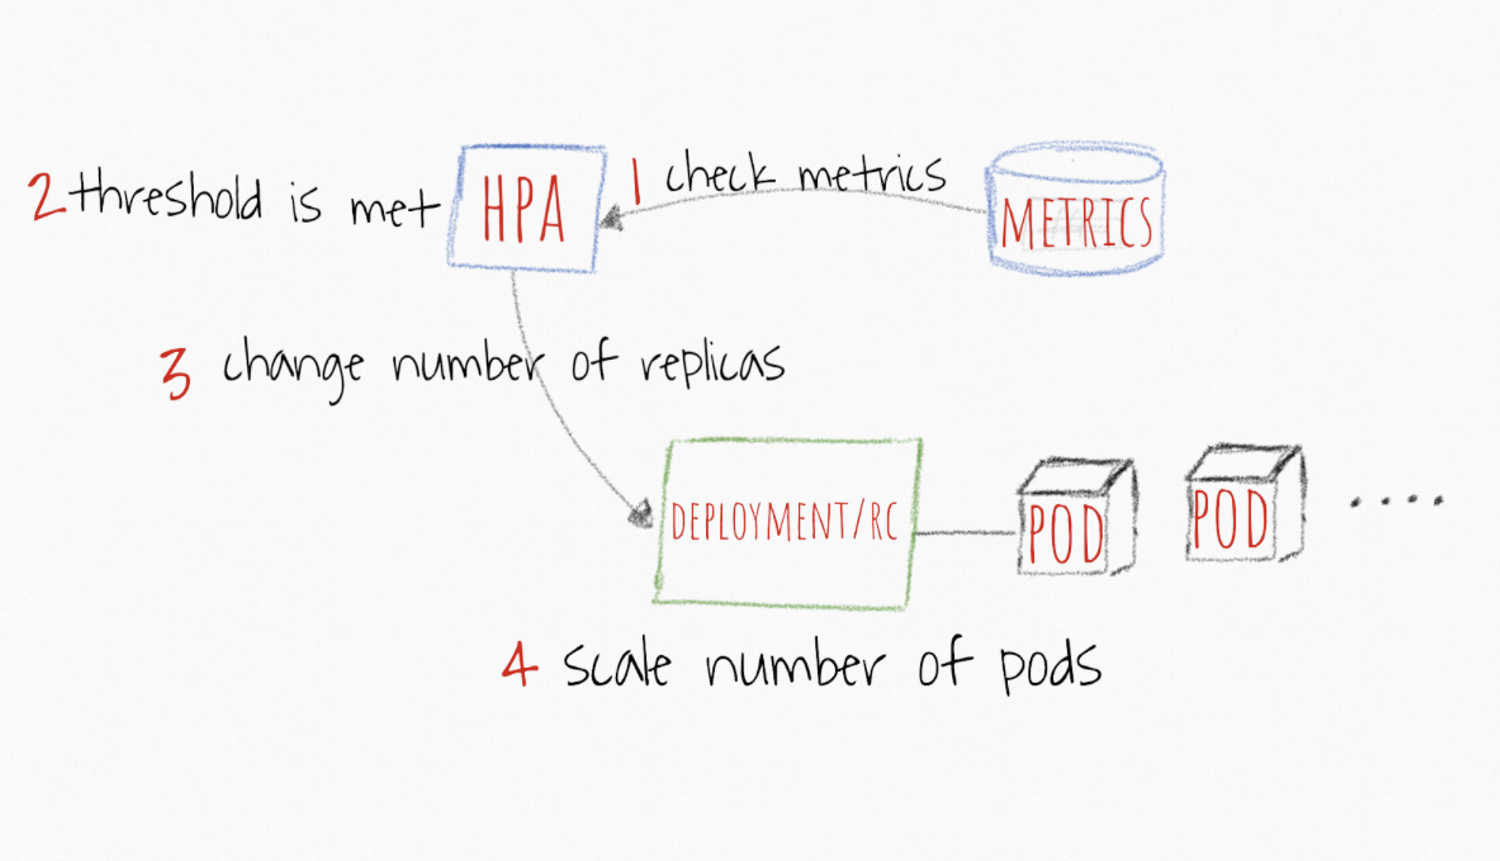 2 threshold is met
HPA
1 check metrics
METRICS
3 change number of replicas
DEPLOYMENT/RC
POD
POD
4 scale number of pods